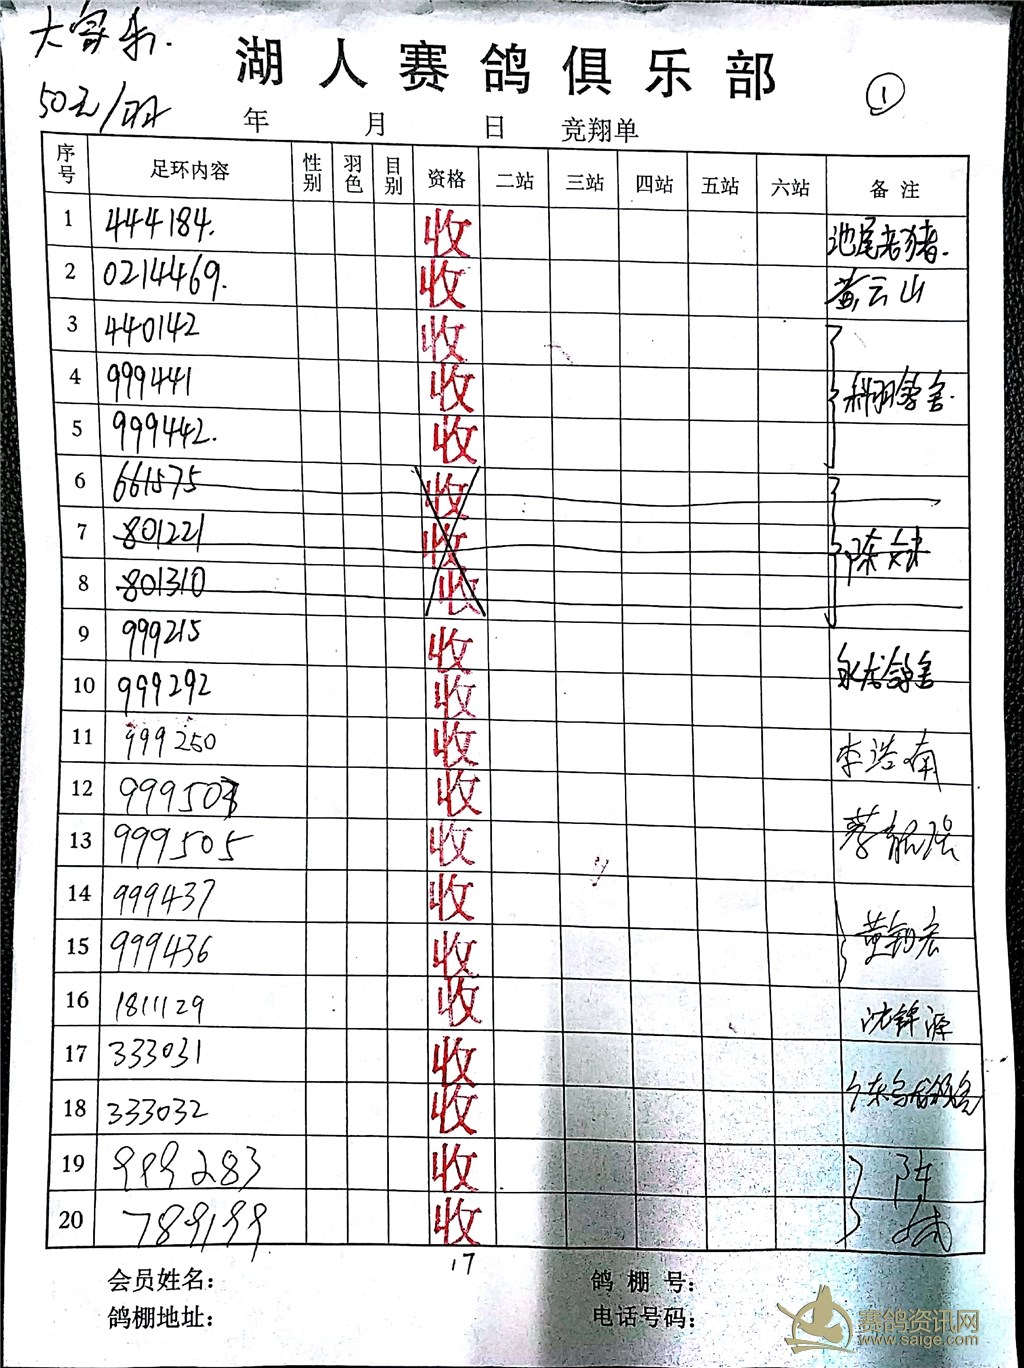 大家乐.
湖人赛鸽俱乐部
50元/羽
①
年 月 日 竞翔单
序号 足环内容 性别 羽色 目别 资格 二站 三站 四站 五站 六站 备注
1 444184. 收 池尾老猪.
2 0214469. 收 黄云山
3 440142 收
4 999441 收 科羽鸽舍.
5 999442. 收
6 661575 收
7 801221 收 陈
8 801310 收
9 999215 收
10 999292 收 永龙鸽舍
11 999250 收 李浩南
12 99950 收
13 999505 收 蔡能强
14 999437 收
15 999436 收 黄
16 1811129 收 沈锦源
17 333031 收
18 333032 收 广东乌龙鸽舍
19 999283 收 陈
20 789199 收
17
会员姓名： 鸽棚号：
鸽棚地址： 电话号码：
赛鸽资讯网
www.saige.com